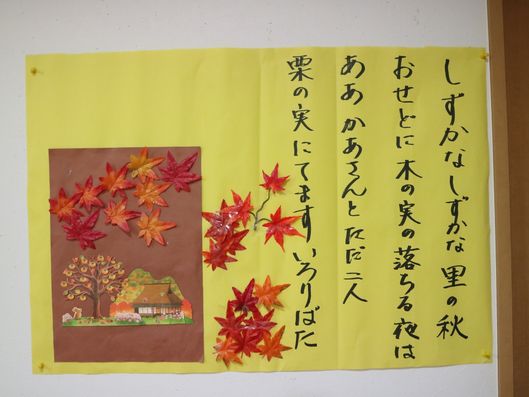 しずかなしずかな里の秋
おせどに木の実の落ちる夜は
ああかあさんとただ二人
栗の実にてますいろりばた